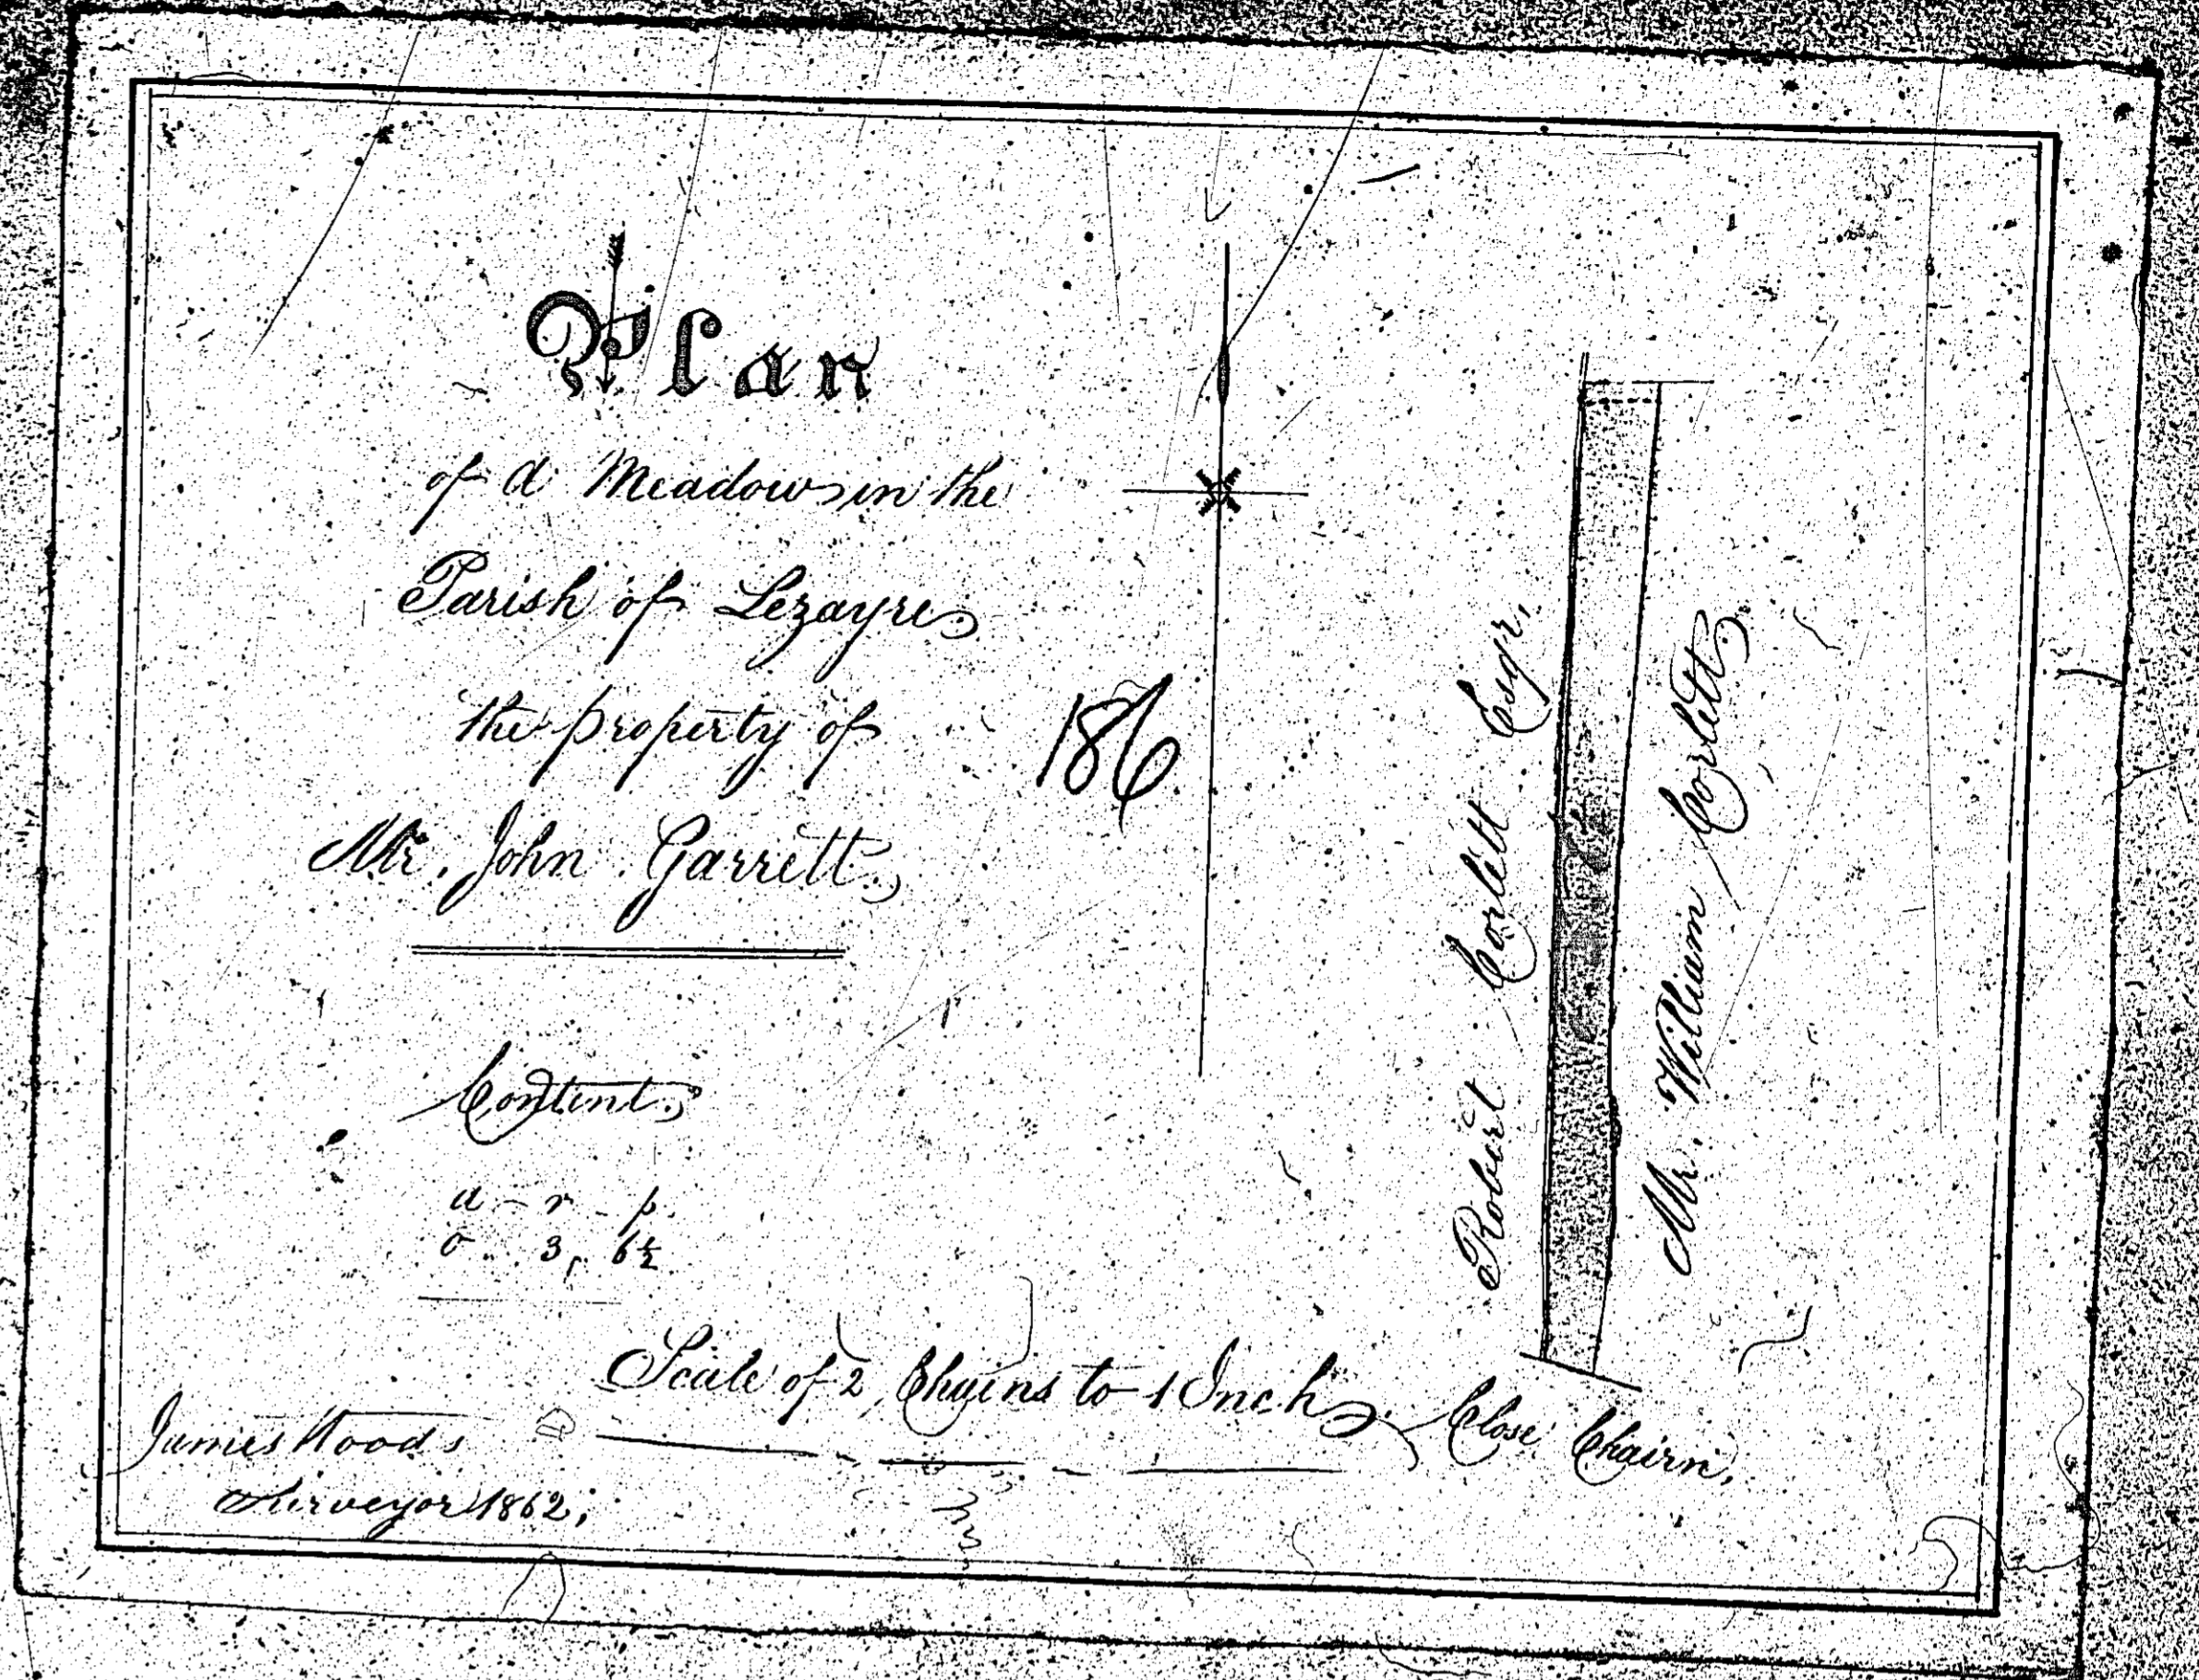 Plan
of a Meadow in the
Parish of Lezayre
the property of
Mr. John Garrett.
186
Content.
a - r - p
0 .. 3, 6½
Scale of 2 Chains to 1 Inch
James Woods
Surveyor 1862;
Robert Corlett Esqr,
Mr. William Corlett.
Close Chairn,